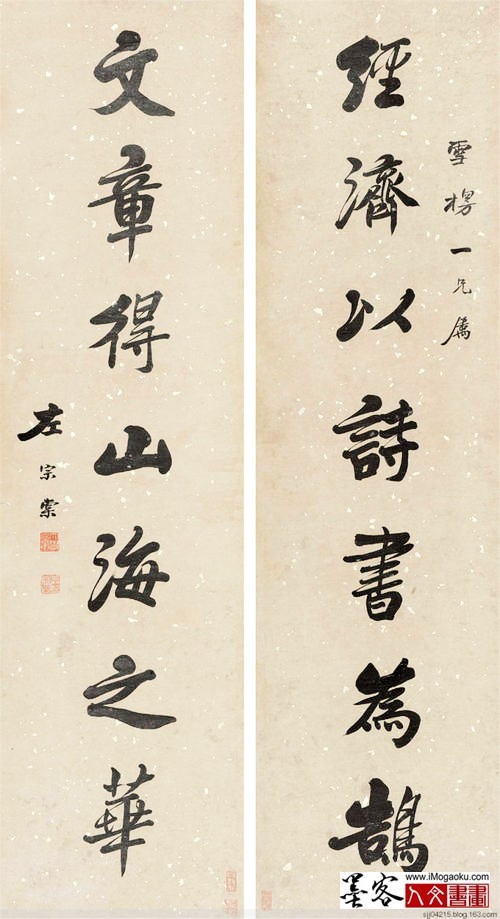 經濟以詩書為鵠
雪樗一兄屬
文章得山海之華
左宗棠
www.iMogaoku.com
墨客人文書畫
sjj04215.blog.163.com/